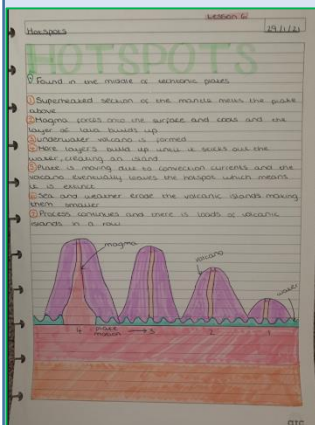 Lesson 6
Hotspots
29/1/21
HOTSPOTS
Found in the middle of techtonic plates
① Superheated section of the mantle melts the plate
above
② Magma forces onto the surface and cools and the
layer of lava builds up
③ Underwater volcano is formed
④ More layers build up until it sticks out the
water, creating an island
⑤ Plate is moving due to convection currents and the
volcano eventually leaves the hotspot which means
it is extinct
⑥ Sea and weather erode the volcanic islands making
them smaller
⑦ Process continues and there is loads of volcanic
islands in a row
magma
volcano
4
plate
motion
3
2
1